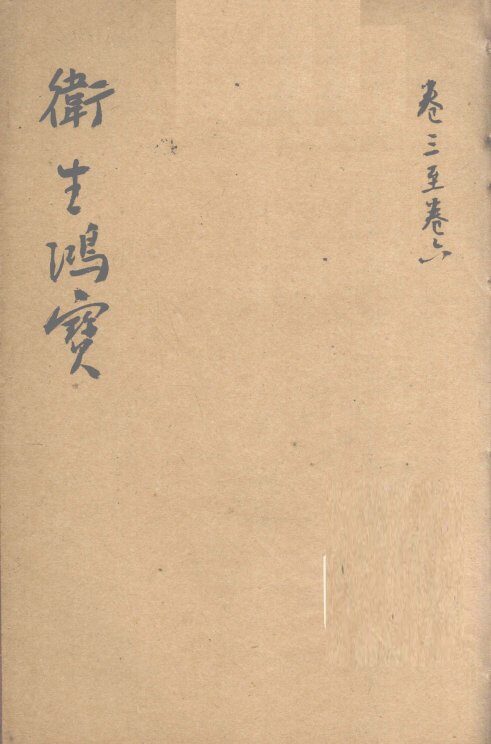 卷三至卷六
衛生鴻寶